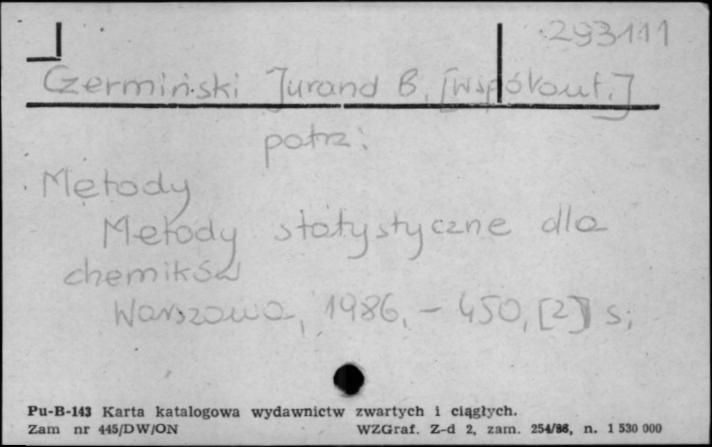 293111
Czermiński Jurand B. [współaut.]
patrz:
Metody
Metody statystyczne dla
chemików
Warszawa, 1986. – 450, [2] s;
Pu-B-143 Karta katalogowa wydawnictw zwartych i ciągłych.
Zam nr 445/DW/ON WZGraf. Z-d 2, zam. 254/86, n. 1 530 000